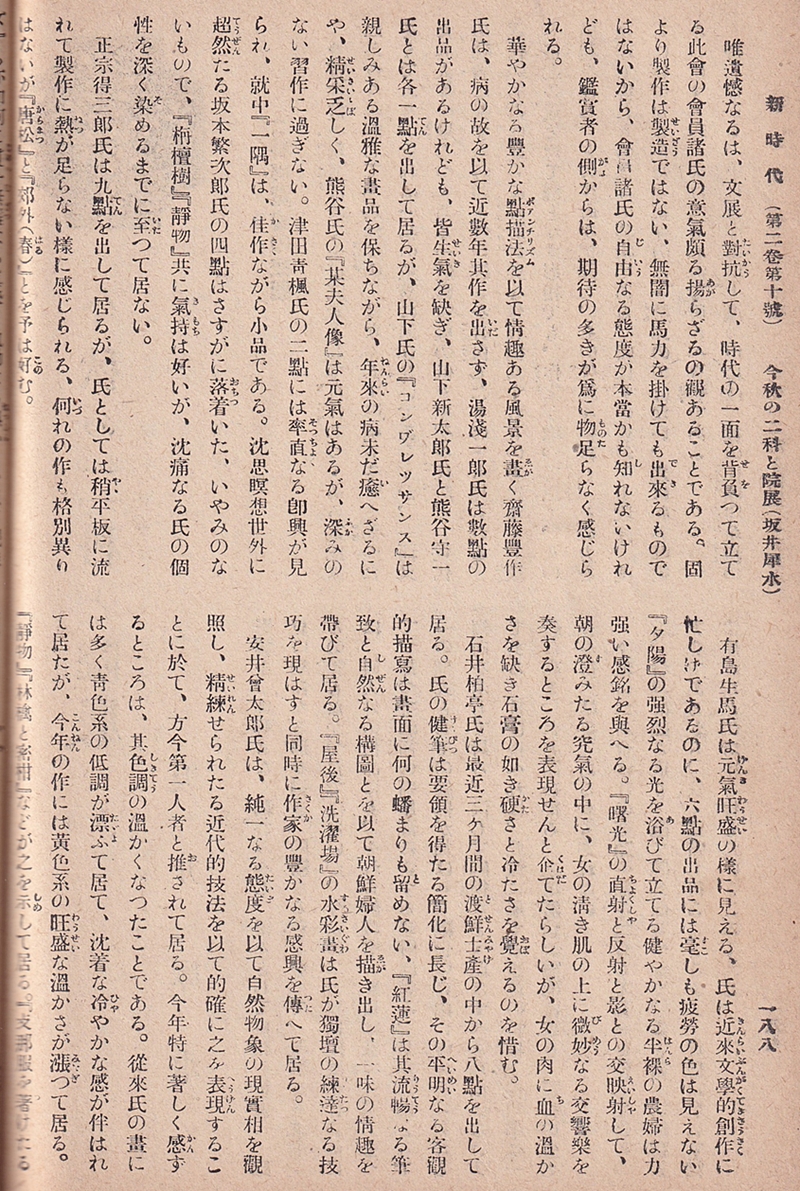 新時代（第二卷第十號）　今秋の二科と院展（坂井犀水）
一八八
唯遺憾なるは、文展と對抗して、時代の一面を背負つて立て
る此會の會員諸氏の意氣頗る揚らざるの觀あることである。固
より製作は製造ではない、無闇に馬力を掛けても出來るもので
はないから、會員諸氏の自由なる態度が本當かも知れないけれ
ども、鑑賞者の側からは、期待の多きが爲に物足らなく感じら
れる。
華やかなる豊かな點描法を以て情趣ある風景を畫く齋藤豐作
氏は、病の故を以て近數年其作を出さず、湯淺一郎氏は數點の
出品があるけれども、皆生氣を缺ぎ、山下新太郎氏と熊谷守一
氏とは各一點を出して居るが、山下氏の『コンヷレッサンス』は
親しみある溫雅な畫品を保ちながら、年來の病未だ癒へざるに
や、精采乏しく、熊谷氏の『某夫人像』は元氣はあるが、深みの
ない習作に過ぎない。津田靑楓氏の二點には率直なる卽興が見
られ、就中『一隅』は、佳作ながら小品である。沈思瞑想世外に
超然たる坂本繁次郎氏の四點はさすがに落着いた、いやみのな
いもので、『栴檀樹』『靜物』共に氣持は好いが、沈痛なる氏の個
性を深く染めるまでに至つて居ない。
正宗得三郎氏は九點を出して居るが、氏としては稍平板に流
れて製作に熱が足らない樣に感じられる、何れの作も格別異り
はないが『唐松』と『郊外（春）』とを予は好む。
有島生馬氏は元氣旺盛の樣に見える、氏は近來文學的創作に
忙しげであるのに、六點の出品には毫しも疲勞の色は見えない
『夕陽』の强烈なる光を浴びて立てる健やかなる半裸の農婦は力
强い感銘を與へる。『曙光』の直射と反射と影との交映射して、
朝の澄みたる空氣の中に、女の淸き肌の上に微妙なる交響樂を
奏するところを表現せんと企てたらしいが、女の肉に血の溫か
さを缺き石膏の如き硬さと冷たさを覺えるのを惜む。
石井柏亭氏は最近三ケ月間の渡鮮土產の中から八點を出して
居る。氏の健筆は要領を得たる簡化に長じ、その平明なる客觀
的描寫は畫面に何の蟠まりも留めない、『紅蓮』は其流暢なる筆
致と自然なる構圖とを以て朝鮮婦人を描き出し、一味の情趣を
帶びて居る。『屋後』『洗濯場』の水彩畫は氏が獨壇の練達なる技
巧を現はすと同時に作家の豊かなる感興を傳へて居る。
安井曾太郎氏は、純一なる態度を以て自然物象の現實相を觀
照し、精練せられたる近代的技法を以て的確に之を表現するこ
とに於て、方今第一人者と推されて居る。今年特に著しく感ず
るところは、其色調の溫かくなつたことである。從來氏の畫に
は多く靑色系の低調が漂ふて居て、沈着な冷やかな感が伴はれ
て居たが、今年の作には黃色系の旺盛な溫かさが漲つて居る。
『靜物』『林檎と蜜柑』などが之を示して居る。『支那服を著けたる